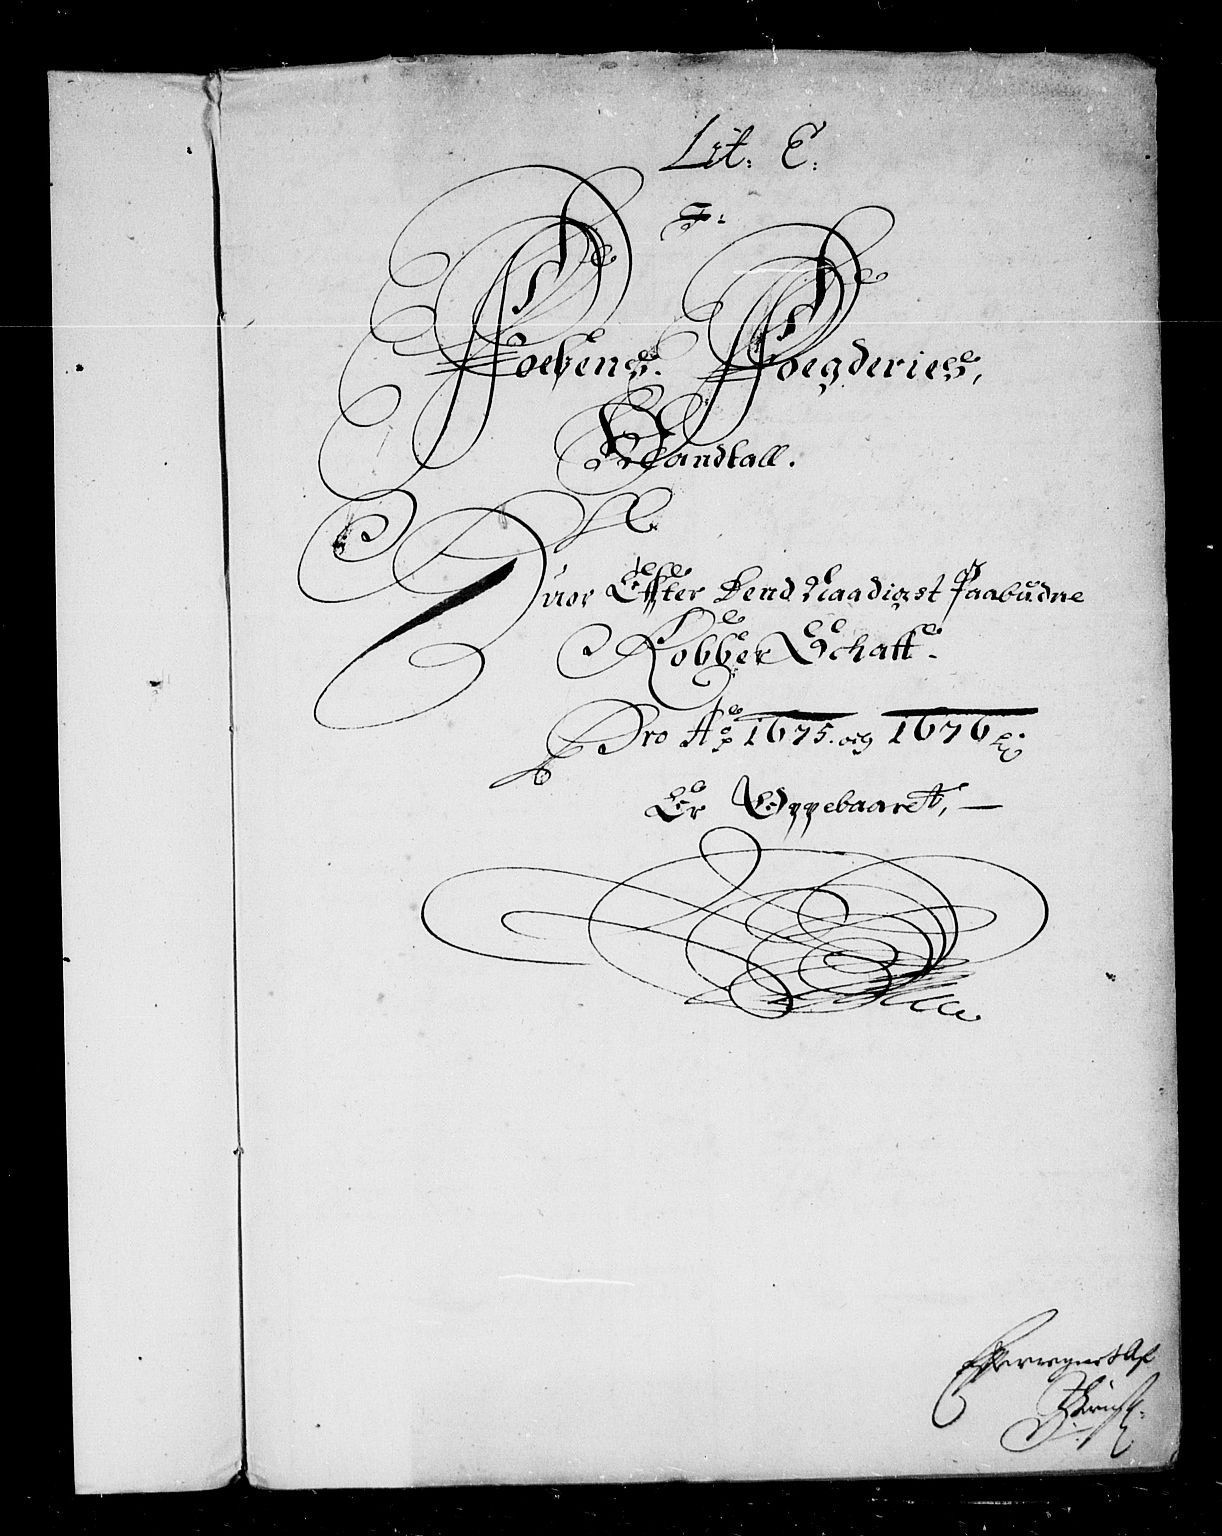 Lit: E:
Foesens. Foegderies,
Mandtall.
Huor Effter Dend Naadigst Paabudne
Kobber Schatt.
Pro Ao 1675. og 1676
Er Oppebaaret,
Efterregnet Af